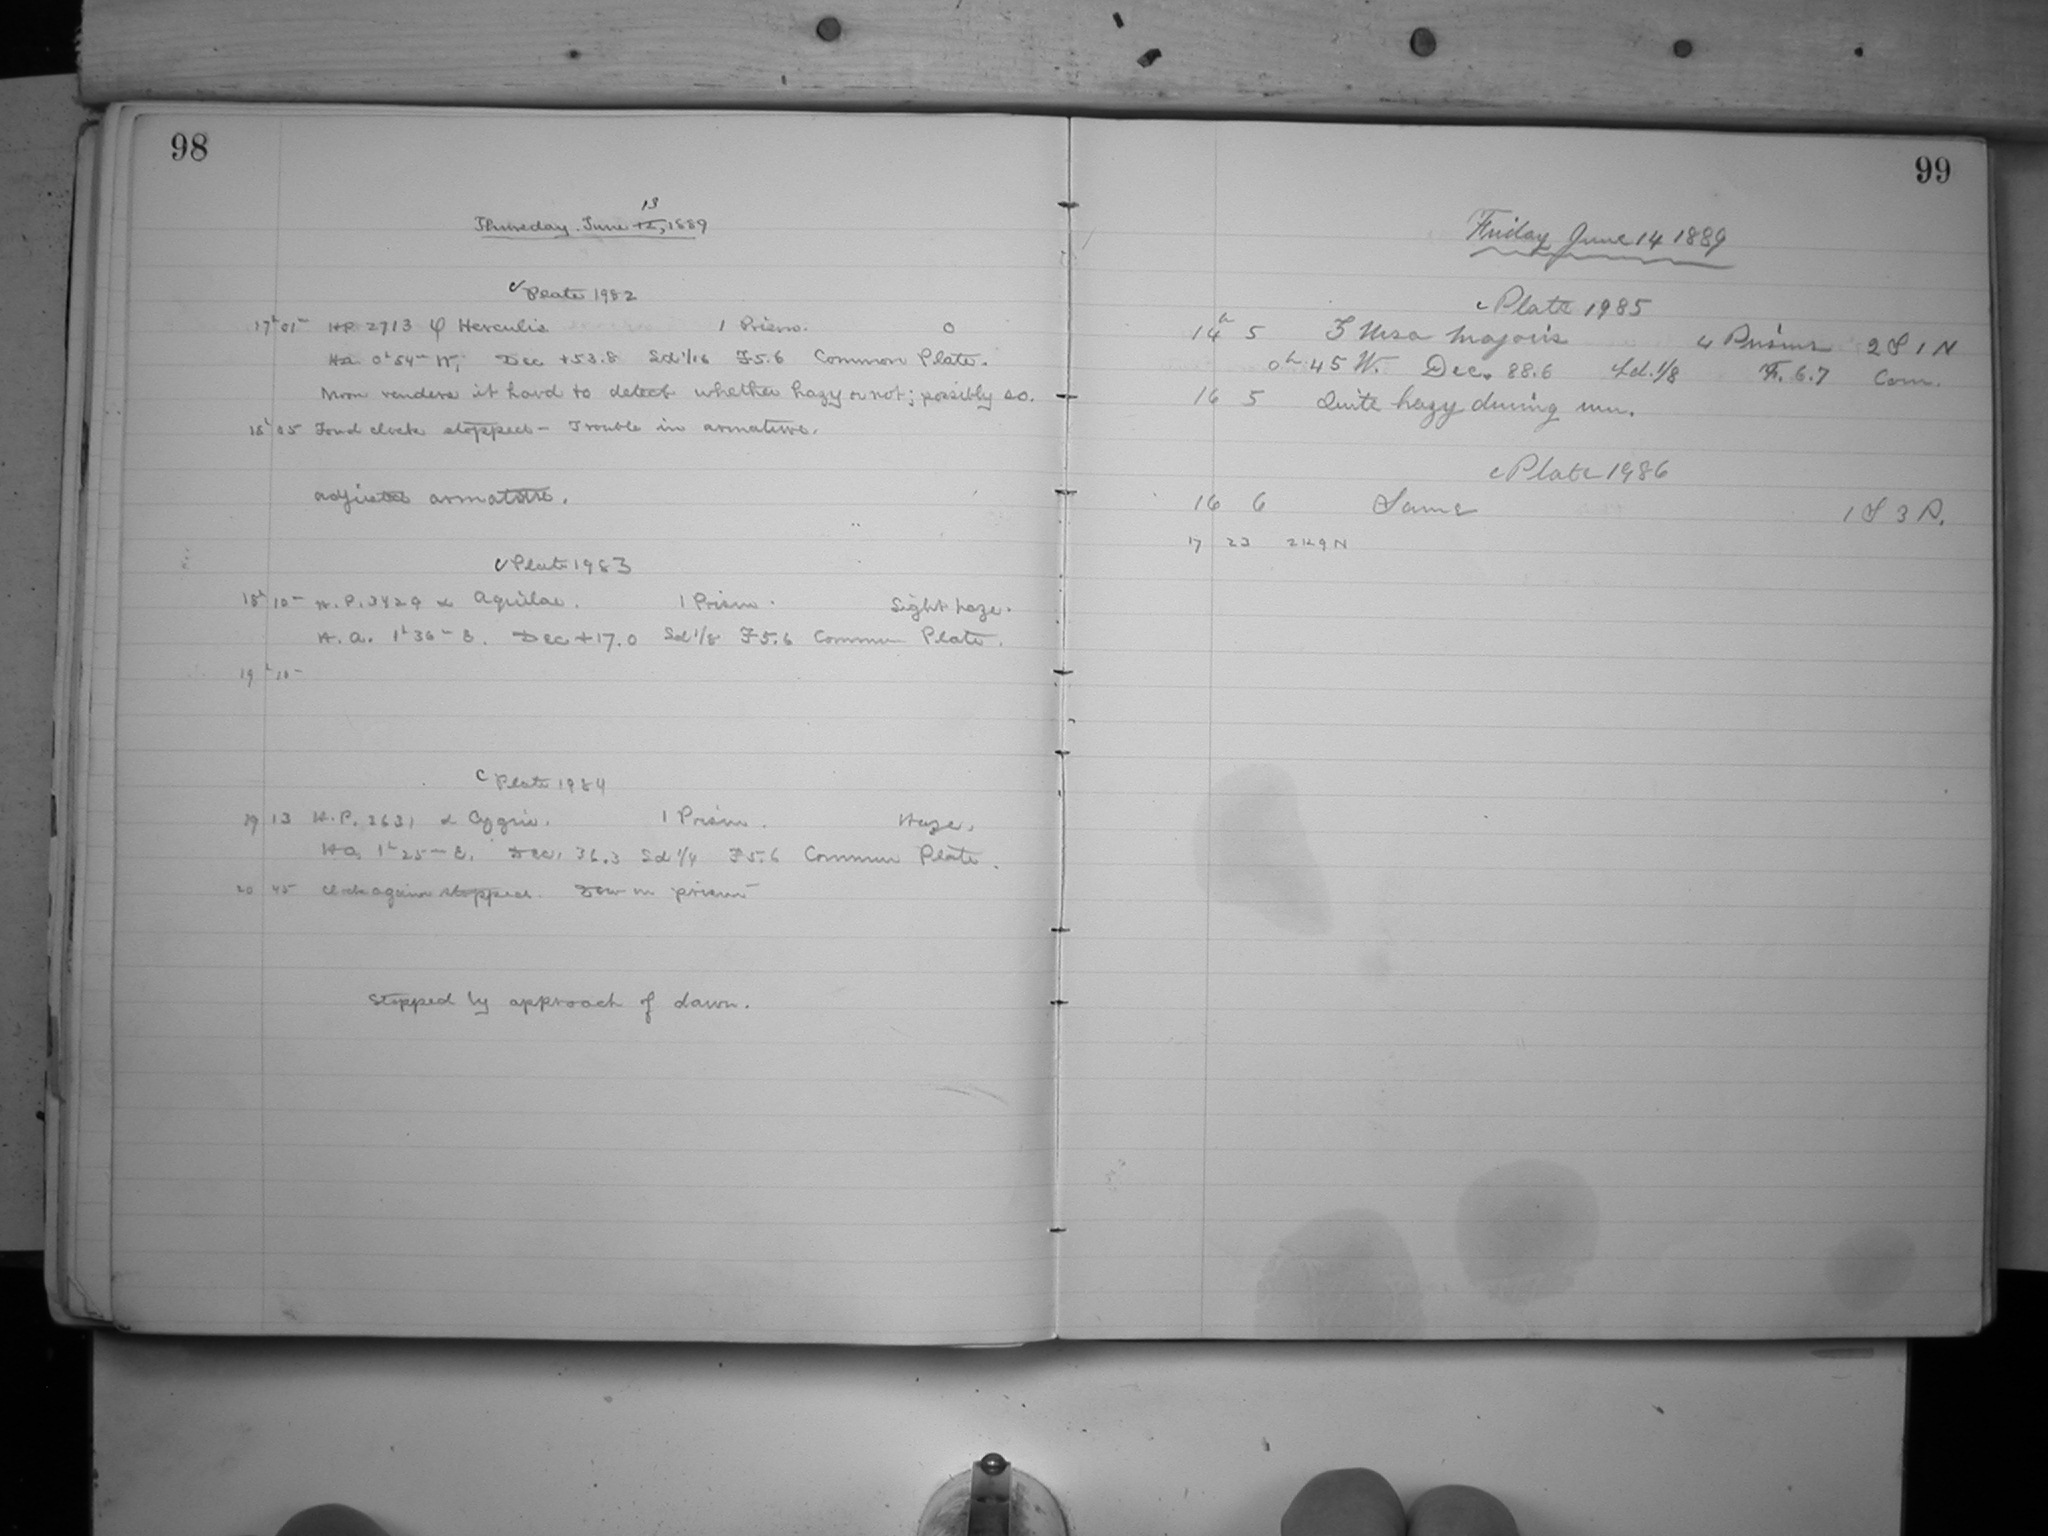 98
13
Thursday. June 12, 1889
c Plate 1982
17h 01m H.P. 2713 φ Herculis 1 Prism. 0
H.a. 0h 54m W; Dec +53.8 Sd 1/16 F5.6 Common Plate.
Moon renders it hard to detect whether hazy or not; possibly so.
18h 05 Fond clock stopped - Trouble in armature.
adjusted armature.
c Plate 1983
18h 10m H.P. 3429 α Aquilae. 1 Prism. Slight haze.
H.a. 1h 36m E. Dec +17.0 Sd 1/8 F5.6 Common Plate.
19h 10m
c Plate 1984
19 13 H.P. 3631 α Cygni. 1 Prism. Haze.
H.a. 1h 25m E. Dec. 36.3 Sd 1/4 F5.6 Common Plate.
20 45 Clock again stopped. Dew on prism
Stopped by approach of dawn.
99
Friday June 14 1889
c Plate 1985
14h 5 ζ Ursa Majoris 4 Prisms 2 S 1 N
0h 45 W. Dec. 88.6 Sd. 1/8 F. 6.7 Com.
16 5 Quite hazy during run.
c Plate 1986
16 6 Same 1 S 3 P.
17 23